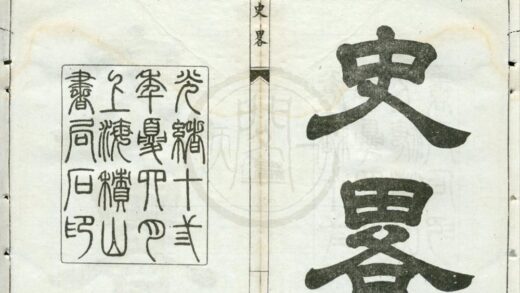 史畧
史畧
光緒十弍
年夏四月
上海積山
書局石印